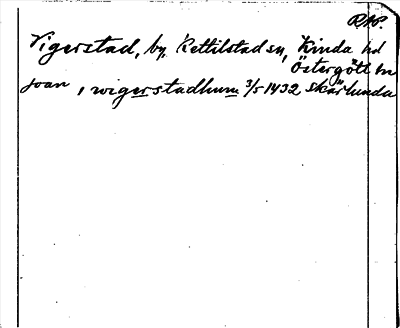 RAP.
Vigerstad, by, Kettilstad sn, Kinda hd
Östergötl ln
joan i wigerstadhum 3/5 1432 Skärlunda